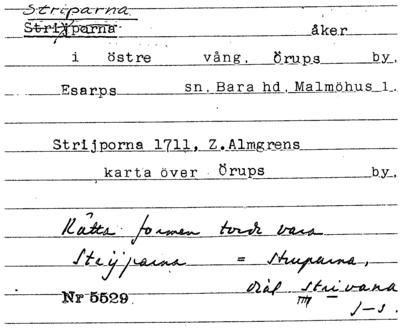 Striparna
Strijporna åker
i östre vång. Örups by.
Esarps sn. Bara hd. Malmöhus l.
Strijporna 1711, Z.Almgrens
karta över Örups by.
Rätta formen torde vara
Streijparna = struparna,
dial strivana
Nr 5529
J-s.